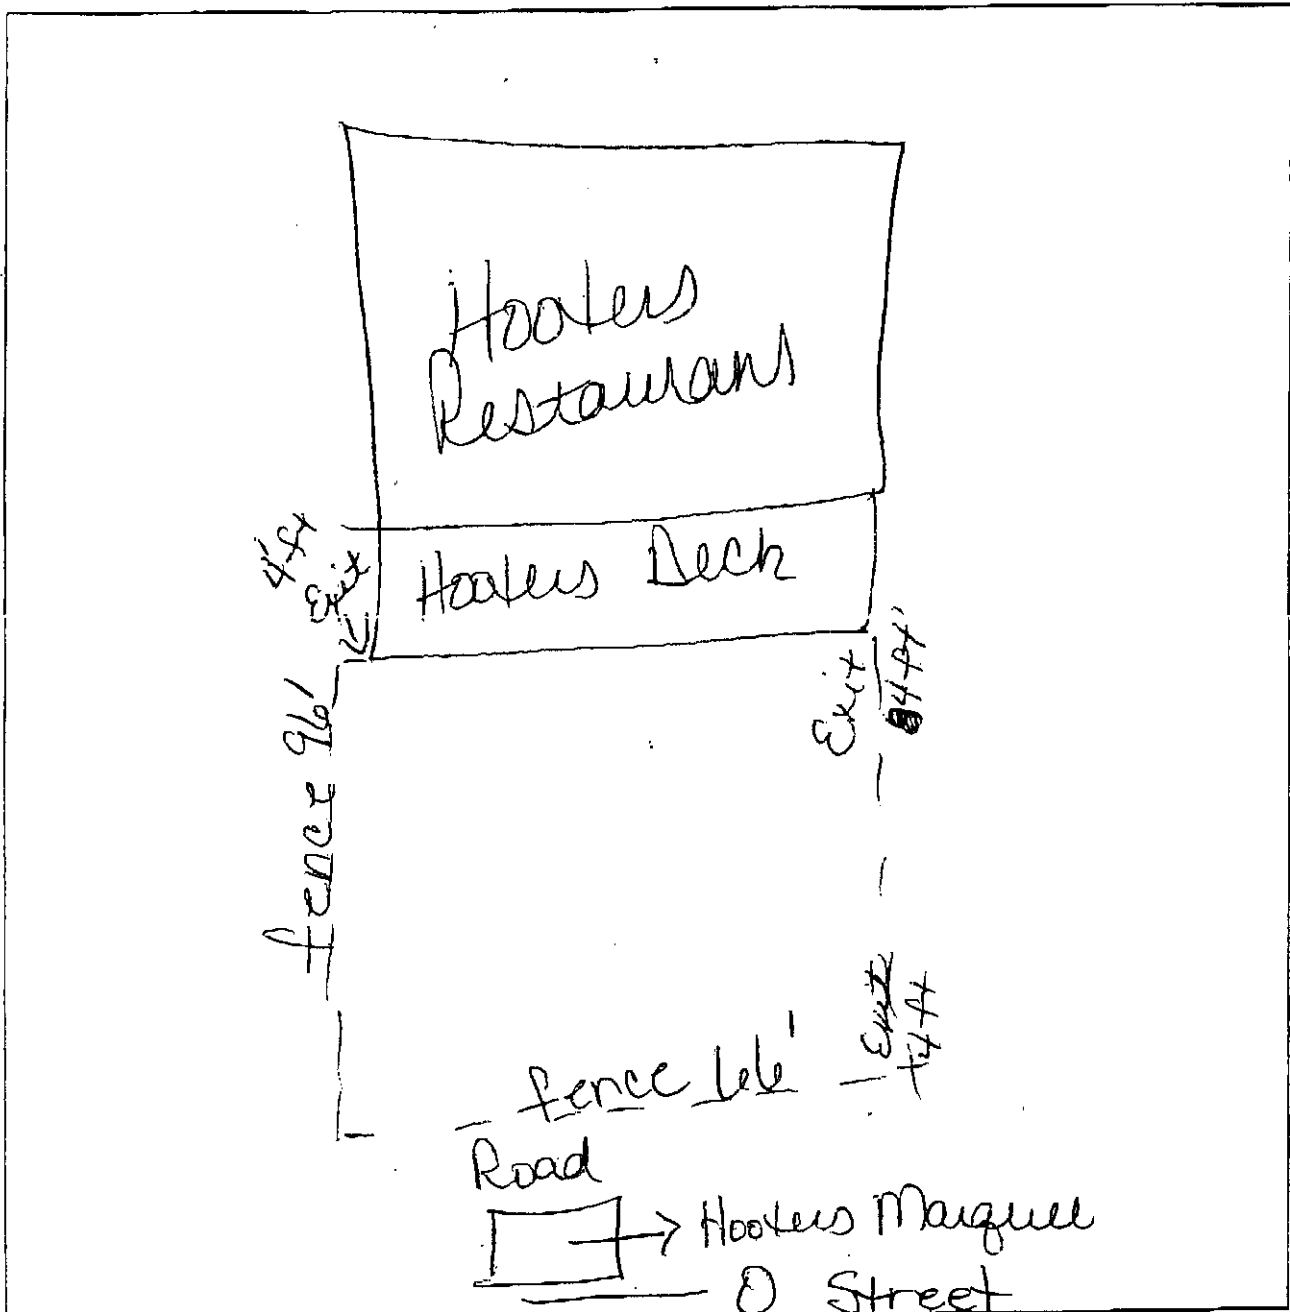 Hooters
Restaurant
4' ft
Exit
Hooters Deck
Exit
4 ft'
fence 96'
Exit
4 ft
fence 66'
Road
Hooters Marquee
O Street